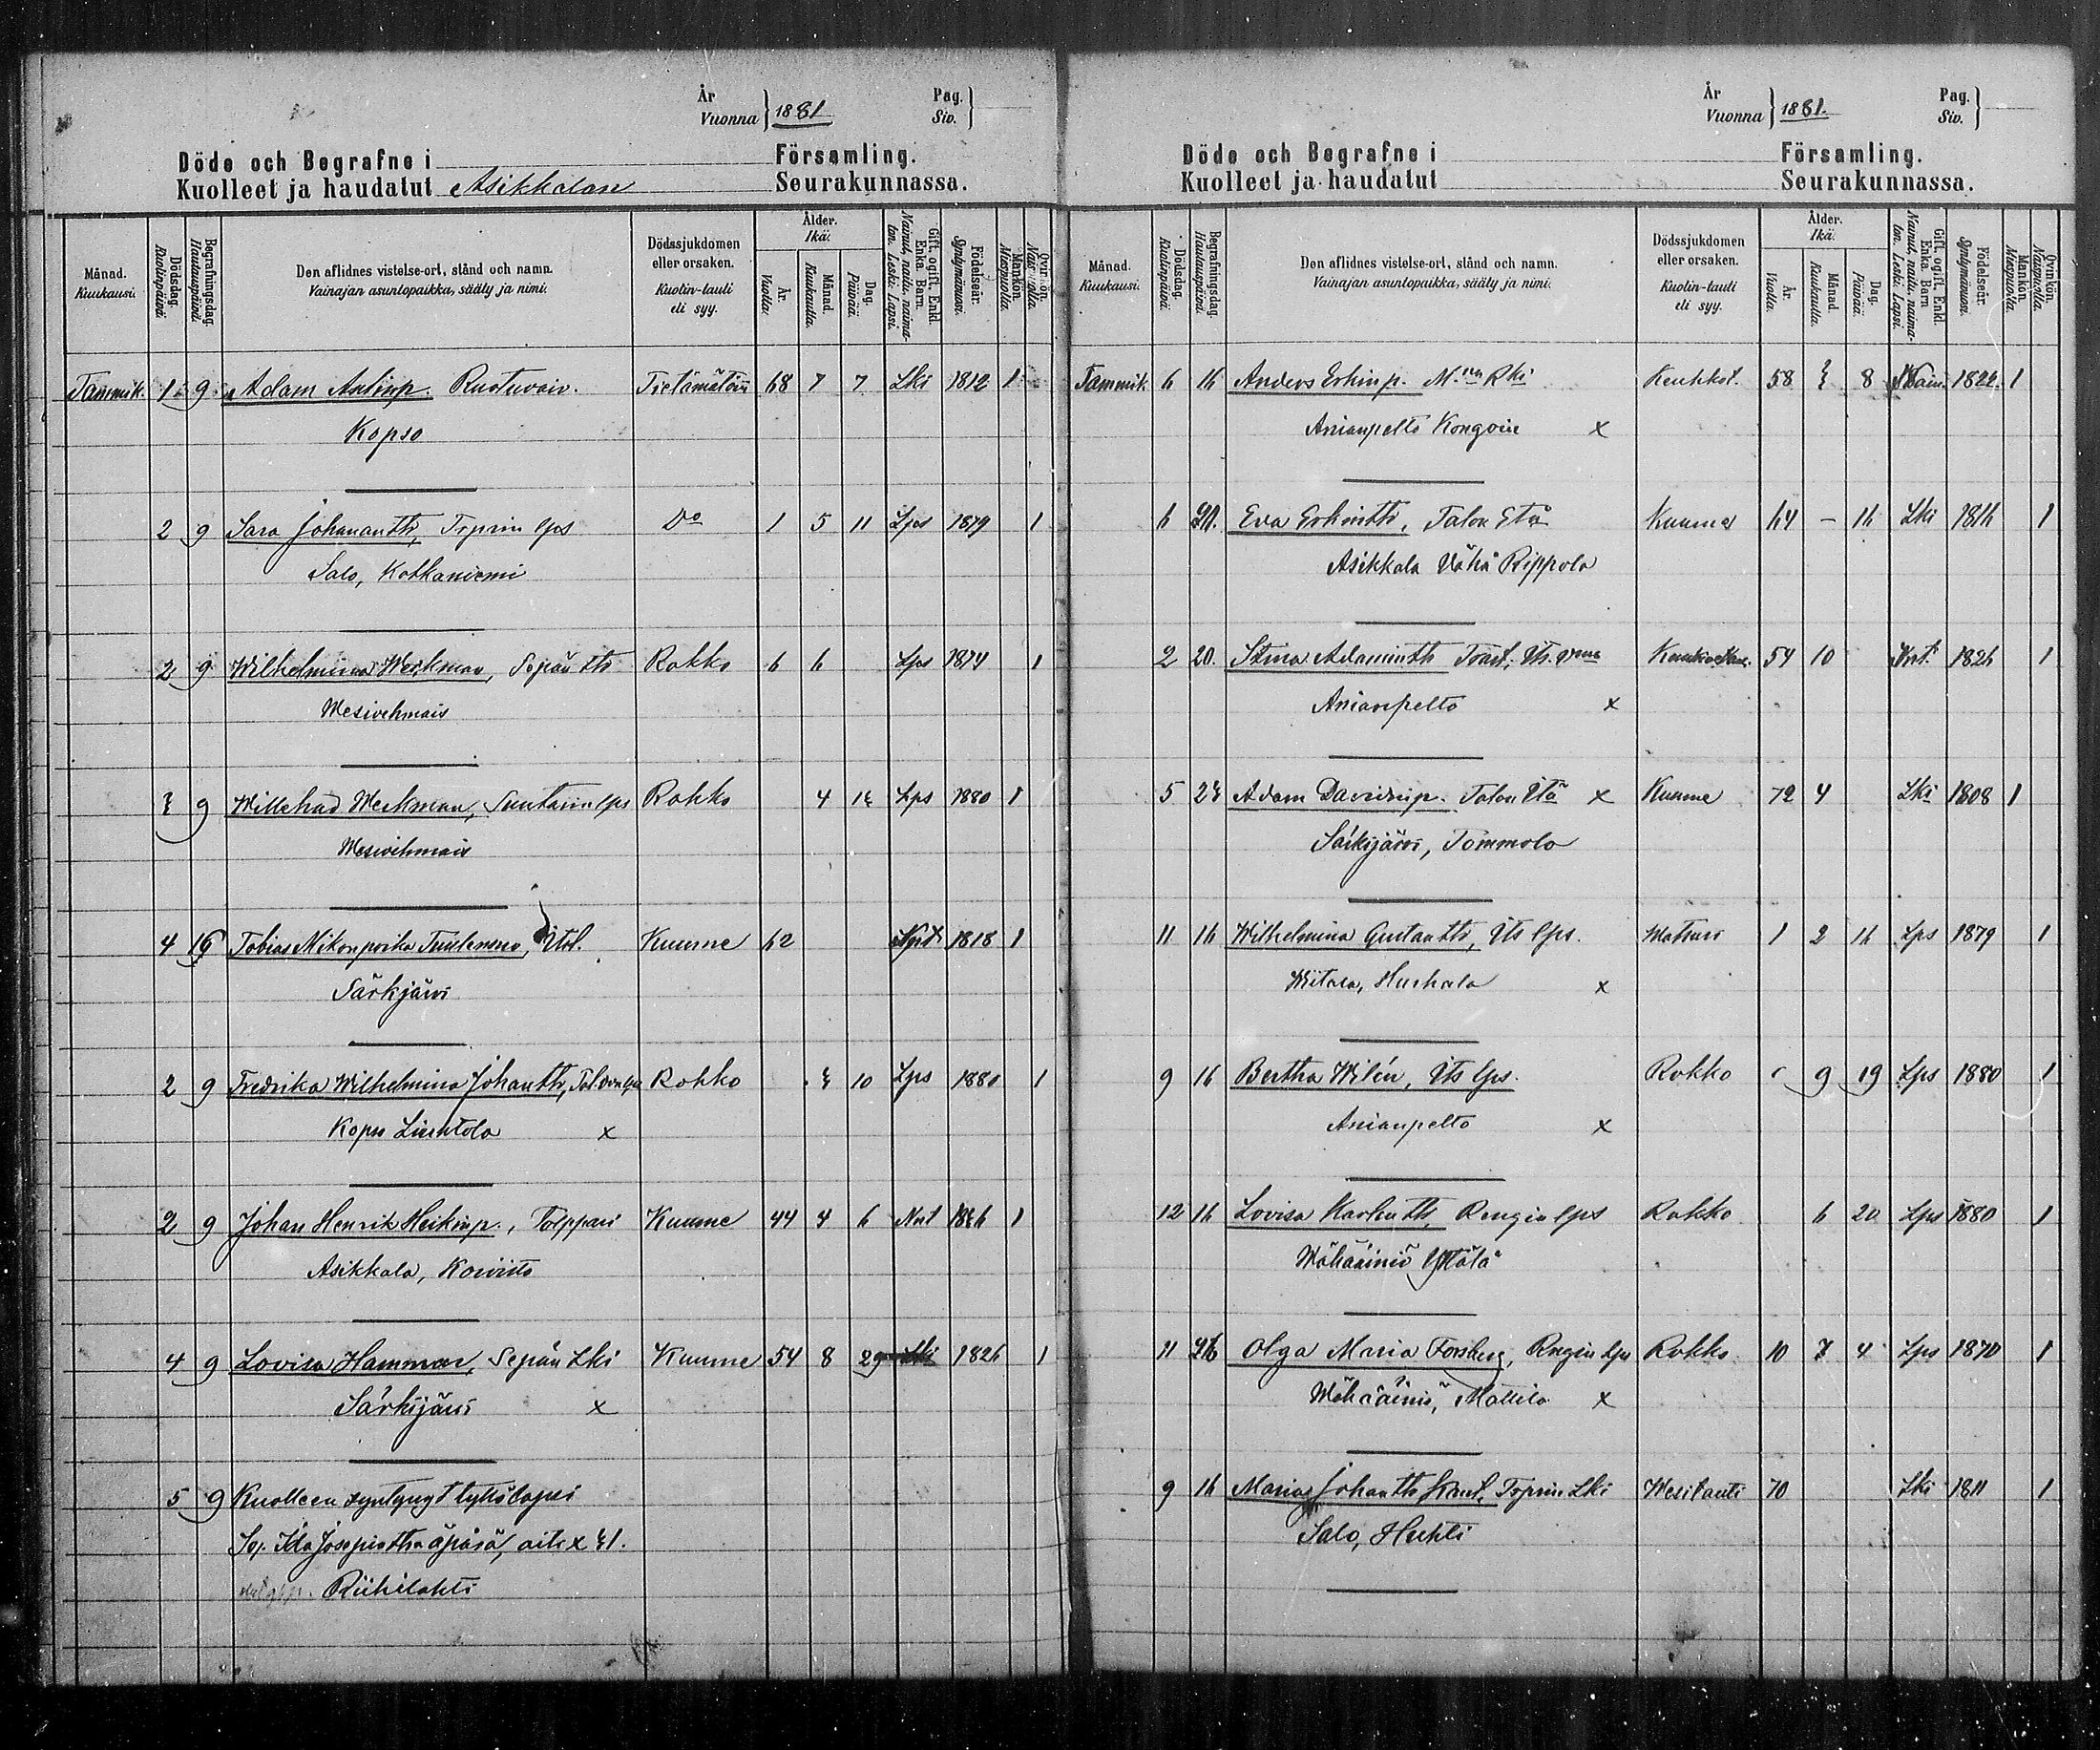 År
Vuonna } 1881
Pag.
Siv. }
Döde och Begrafne i Församling.
Kuolleet ja haudatut Asikkalan Seurakunnassa.
Månad. Kuukausi.
Dödsdag. Kuolinpäivä.
Begrafningsdag. Hautauspäivä.
Den aflidnes vistelse-ort, stånd och namn.
Vainajan asuntopaikka, sääty ja nimi.
Dödssjukdomen eller orsaken.
Kuolin-tauti eli syy.
Ålder. Ikä.
År. Vuotta.
Månad. Kuukautta.
Dag. Päivää.
Gift, ogift. Enkl. Enka. Barn. Nainut, naitu, naimaton. Leski. Lapsi.
Födelseår. Syntymävuosi.
Mankön. Miespuolia.
Qvinkön. Naispuolia.
Tammik. 1 9 Adam Antinp. Ruotuvaiv. Tietämätöin 68 7 7 Lki 1812 1
Kopso
2 9 Sara Johananth, Trprin lps Do 1 5 11 Lps 1879 1
Salo, Kotkaniemi
2 9 Wilhelmina Werkman, Sepän th Rokko 6 6 Lps 1874 1
Mesivehmais
3 9 Willehad Werkman, Suutarin lps Rokko 4 Lps 1880 1
Mesivehmais
4 16 Tobias Mikonpoika Tuulensuu, Itsl. Kuume 62 1818 1
Särkjärvi
2 9 Fredrika Wilhelmina Johanth, Rokko 3 10 Lps 1880 1
Kopso Liehtola x
2 9 Johan Henrik Heikinp., Torppari Kuume 44 4 6 Nnt 1836 1
Asikkala, Koivisto
4 9 Lovisa Hammar, Sepän Lki Kuume 54 8 29 Lki 1826 1
Särkijärvi x
5 9 Kuolleen syntynyt tyttölapsi
Ida Josepinth äpärä, äiti x 31.
Riihilahti
År
Vuonna } 1881.
Pag.
Siv. }
Döde och Begrafne i Församling.
Kuolleet ja haudatut Seurakunnassa.
Månad. Kuukausi.
Dödsdag. Kuolinpäivä.
Begrafningsdag. Hautauspäivä.
Den aflidnes vistelse-ort, stånd och namn.
Vainajan asuntopaikka, sääty ja nimi.
Dödssjukdomen eller orsaken.
Kuolin-tauti eli syy.
Ålder. Ikä.
År. Vuotta.
Månad. Kuukautta.
Dag. Päivää.
Gift, ogift. Enkl. Enka. Barn Nainut, naitu, naimaton. Leski. Lapsi.
Födelseår. Syntymävuosi.
Mankön. Miespuolia.
Qvinkön. Naispuolia.
Tammik. 6 16 Anders Erkinp. Keuhkot. 58 3 8 1822. 1
Anianpelto Kongoin x
6 Eva Erkinth, Talon Etä Kuume 64 – 16 Lki 1816 1
Asikkala Vähä Rippola
2 20. Stina Adaminth 54 10 1826 1
Anianpelto x
5 23 Adam Davidinp. Talon Itä x Kuume 72 4 Lki 1808 1
Särkijärvi, Tommola
11 16 Wilhelmina Gustanth, Its lps. Matsur 1 2 16 Lps 1879 1
Wiitala, Hurkala x
9 16 Bertha Wilén, Its lps. Rokko 9 19 Lps 1880 1
Anianpelto x
12 16 Lovisa Karlunth, Rengin lps Rokko 6 20 Lps 1880 1
Wähääiniö
11 Olga Maria Forsberg, Rngin lps Rokko 10 7 4 Lps 1870 1
Wähääiniö, Mattila x
9 16 Maria Johanth Trprin Lki Wesitauti 70 Lki 1811 1
Salo, Huhti